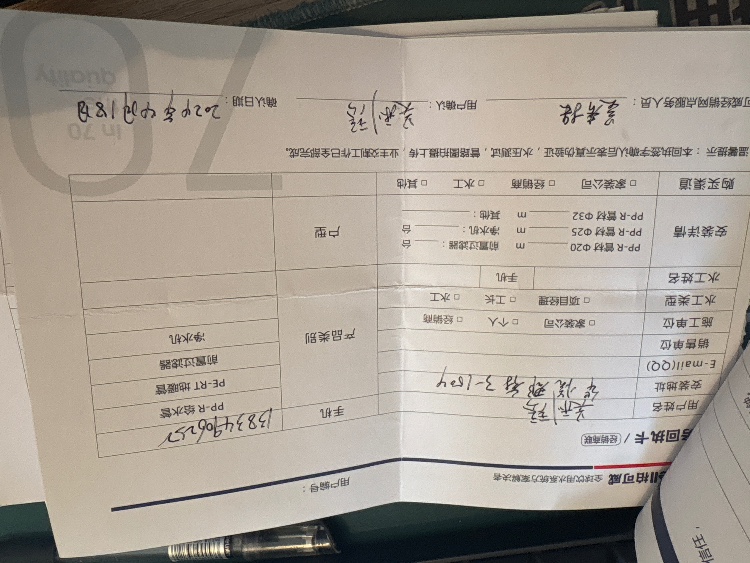 拍可威 全球饮用水系统方案解决者
用户编号：
回执卡 / 经销商联
用户姓名 手机 138349062
安装地址 3-1504
E-mail(QQ)
销售单位
施工单位 □ 家装公司 □ 个人 □ 经销商
水工类型 □ 项目经理 □ 工长 □ 水工
水工姓名 手机
产品类别
PP-R 给水管
PE-RT 地暖管
前置过滤器
净水机
安装详情
PP-R 管材 Φ20 m 前置过滤器： 台
PP-R 管材 Φ25 m 净水机： 台
PP-R 管材 Φ32 m 其他：
户型
购买渠道 □ 家装公司 □ 经销商 □ 水工 □ 其他
温馨提示：本回执签字确认后表示真伪验证，水压测试，管路图拍摄上传，业主交割工作日全部完成。
可威经销网点服务人员： 用户确认： 确认日期：2024年4月18日
70
quality
in 70
信任，